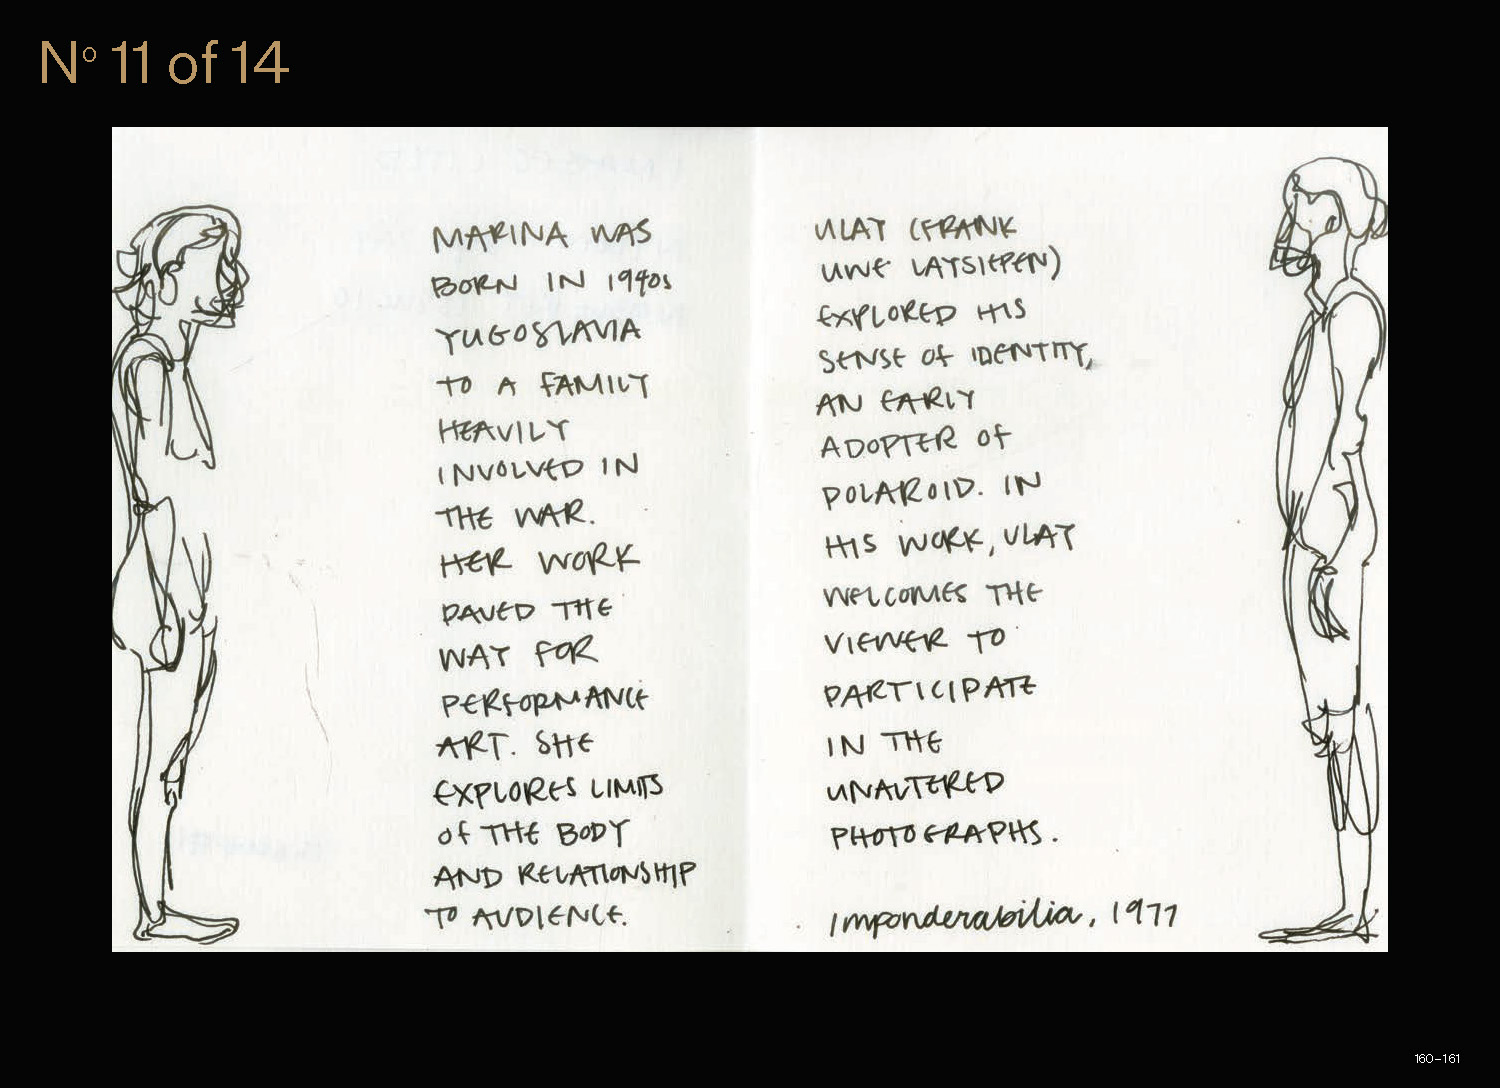 Nº 11 of 14
MARINA WAS
BORN IN 1940s
YUGOSLAVIA
TO A FAMILY
HEAVILY
INVOLVED IN
THE WAR.
HER WORK
PAVED THE
WAY FOR
PERFORMANCE
ART. SHE
EXPLORES LIMITS
OF THE BODY
AND RELATIONSHIP
TO AUDIENCE.
ULAY (FRANK
UWE LAYSIEPEN)
EXPLORED HIS
SENSE OF IDENTITY,
AN EARLY
ADOPTER OF
POLAROID. IN
HIS WORK, ULAY
WELCOMES THE
VIEWER TO
PARTICIPATE
IN THE
UNALTERED
PHOTOGRAPHS.
Imponderabilia, 1977
160–161